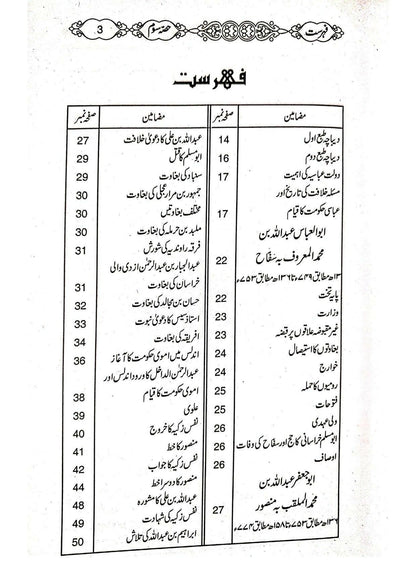 فہرست
حصہ سوم
3
فہرست
مضامین صفحہ نمبر
دیباچہ طبع اول 14
دیباچہ طبع دوم 16
دولت عباسیہ کی اہمیت 17
مسئلہ خلافت کی تاریخ اور
عباسی حکومت کا قیام 17
ابوالعباس عبداللہ بن
محمد المعروف بہ سفاح 22
۱۳۲ھ مطابق ۷۴۹ء تا ۱۳۶ھ مطابق ۷۵۳ء
پایہ تخت 22
وزارت 23
غیر مقبوضہ علاقوں پر قبضہ 23
بغاوتوں کا استیصال 24
خوارج 24
رومیوں کا حملہ 25
فتوحات 25
ولی عہدی 26
ابو مسلم خراسانی کا حج اور سفاح کی وفات 26
اوصاف 26
ابو جعفر عبداللہ بن
محمد الملقب بہ منصور 27
۱۳۶ھ مطابق ۷۵۳ء تا ۱۵۸ھ مطابق ۷۷۴ء
مضامین صفحہ نمبر
عبداللہ بن علی کا دعویٰ خلافت 27
ابو مسلم کا قتل 29
سنباد کی بغاوت 29
جمہور بن مرار عجلی کی بغاوت 30
مختلف بغاوتیں 30
ملبد بن حرملہ کی بغاوت 30
فرقہ راوندیہ کی شورش 31
عبدالجبار بن عبدالرحمٰن ازدی والی
خراسان کی بغاوت 31
حسان بن مجالد کی بغاوت 32
استاذ سیس کا دعویٰ نبوت 33
افریقہ کی بغاوت 34
اندلس میں اموی حکومت کا آغاز 36
عبدالرحمٰن الداخل کا ورود اندلس اور
اموی حکومت کا قیام 38
علوی 39
نفس زکیہ کا خروج 40
منصور کا خط 41
نفس زکیہ کا جواب 42
منصور کا دوسرا خط 44
عبداللہ بن علی کا مشورہ 48
نفس زکیہ کی شہادت 49
ابراہیم بن عبداللہ کی تلاش 50